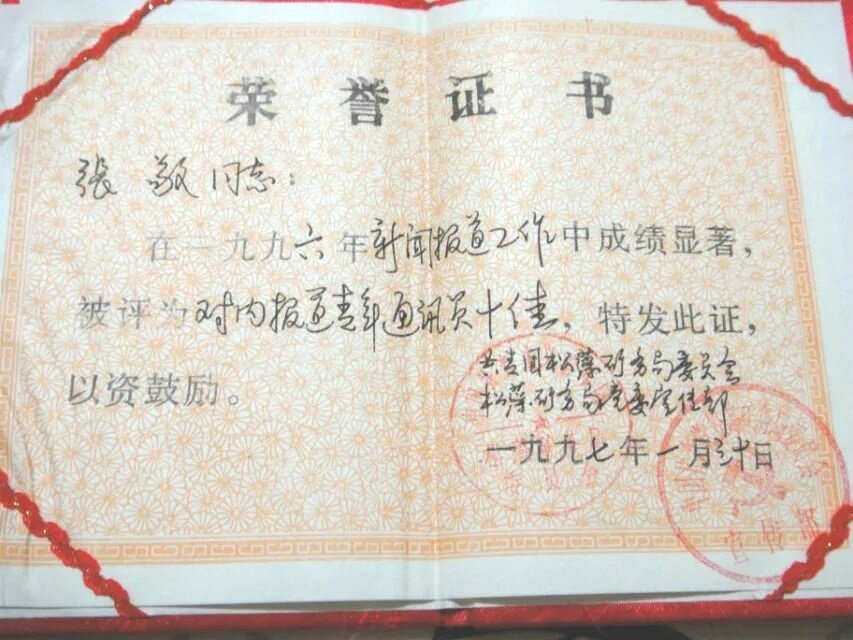 荣誉证书
张敬同志：
在一九九六年新闻报道工作中成绩显著，
被评为对内报道青年通讯员十佳，特发此证，
以资鼓励。
共青团松藻矿务局委员会
松藻矿务局党委宣传部
一九九七年一月三十日
宣传部